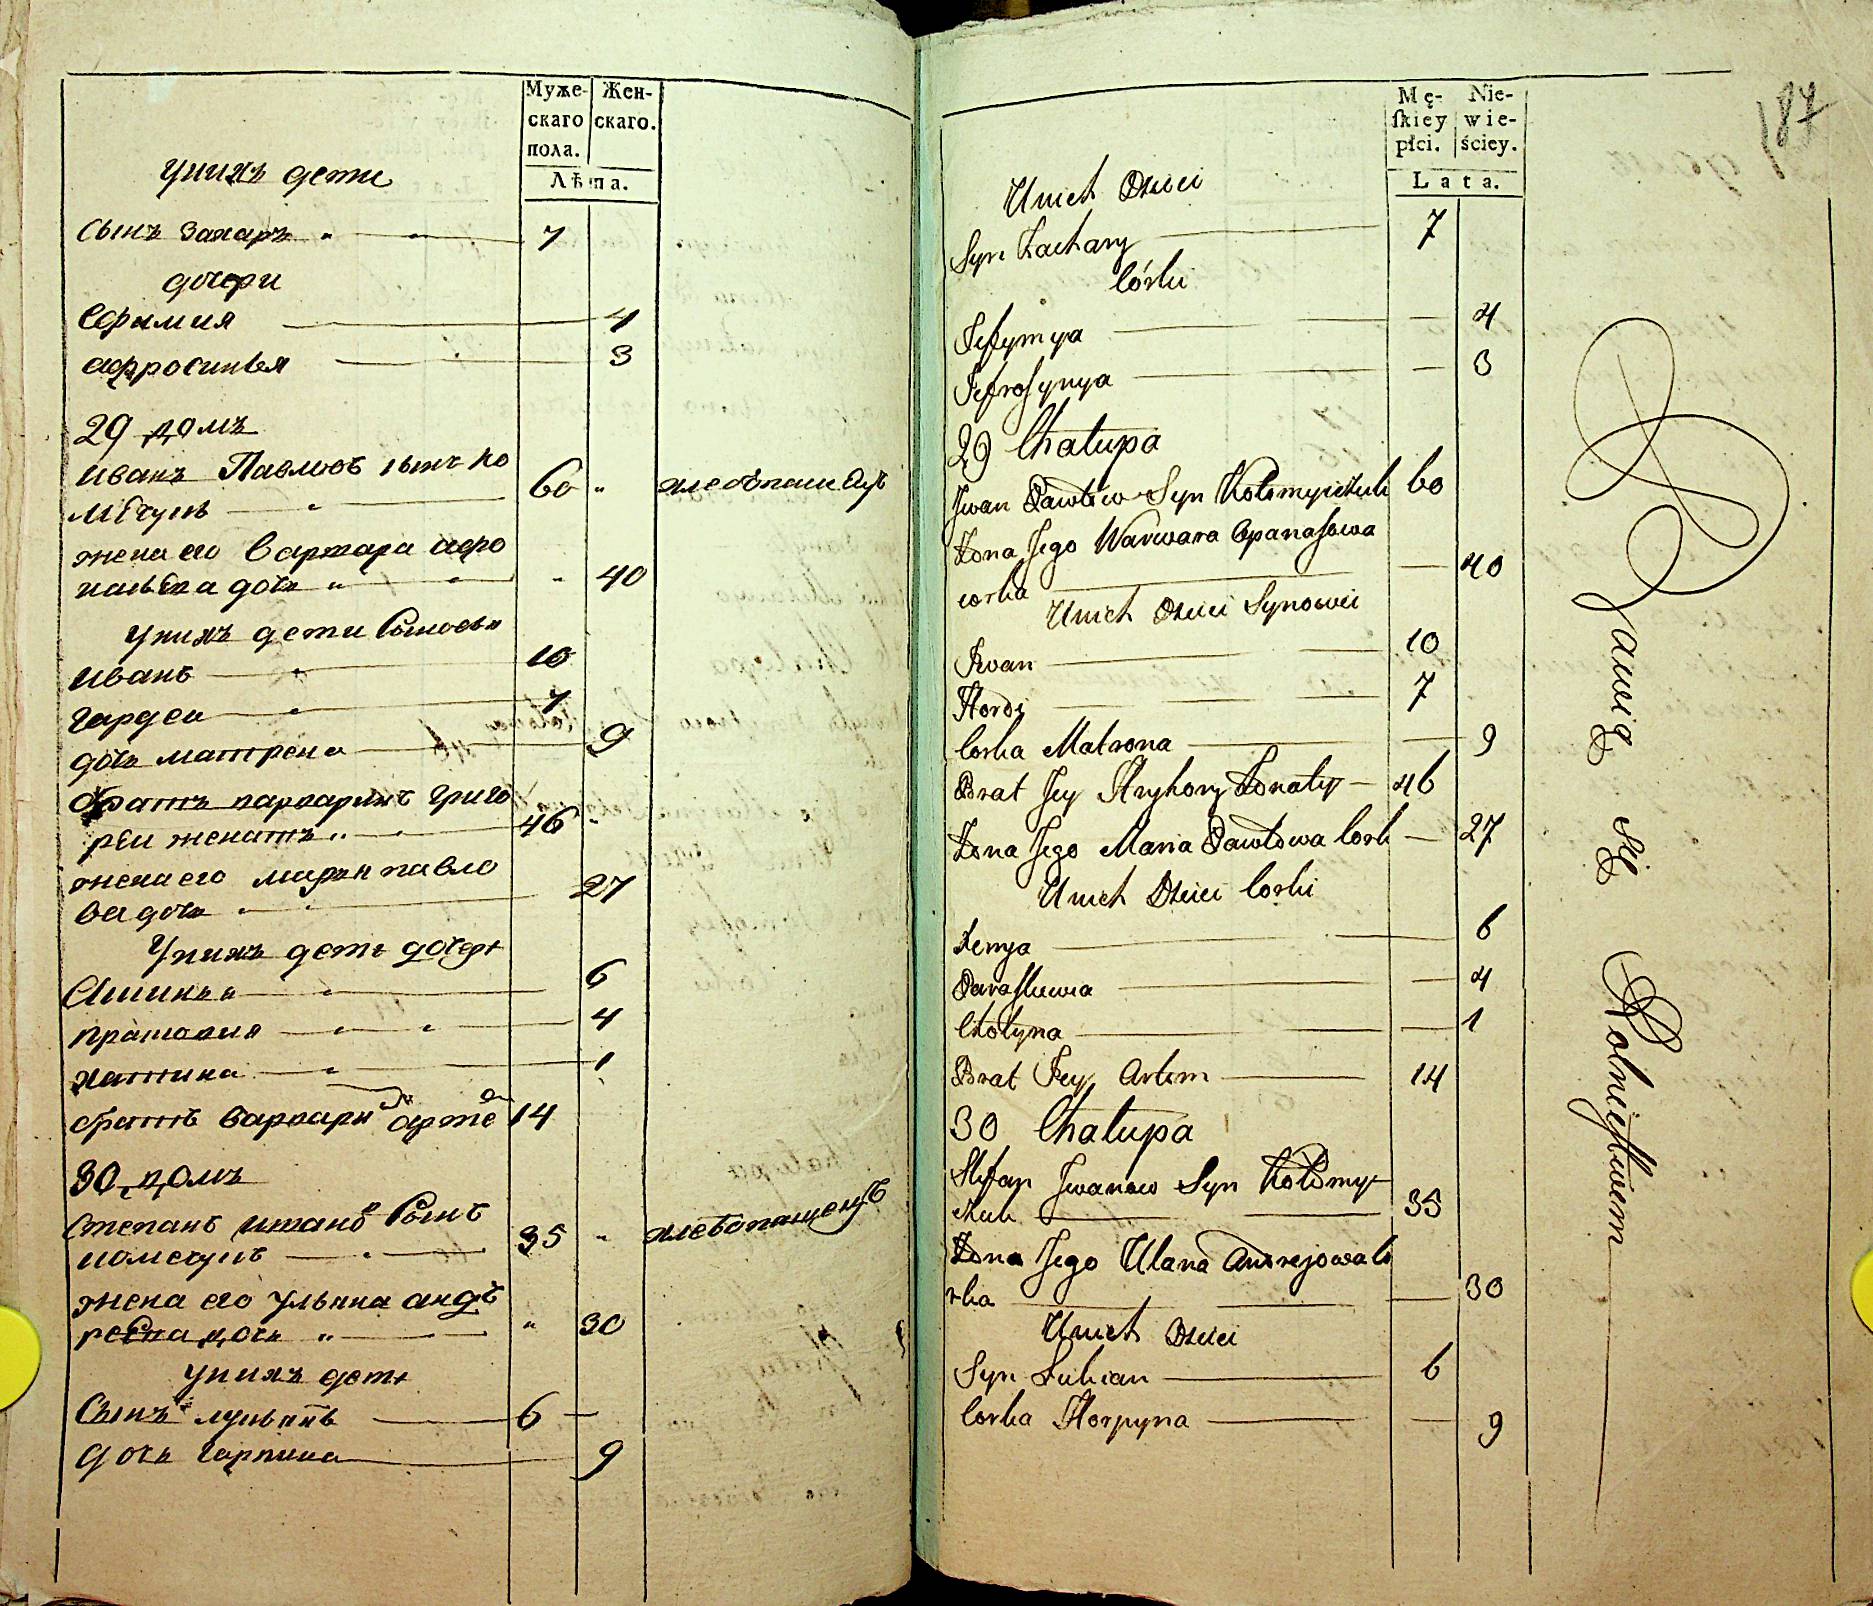 Муже-
скаго
пола.
Жен-
скаго.
Лѣта.
У нихъ дети
Сынъ Захаръ 7
дочери
Ефимия 4
Афросинья 3
29 домъ
Иванъ Павловъ сынъ Ко
мечукъ 60 хлебопашецъ
жена его Варвара Афо
насьева дочь 40
У нихъ дети Сыновья
Иванъ 10
Гардеи 7
дочь Матрена 9
братъ Варваринъ Григо
реи женатъ 46
жена его Мария Павло
ва дочь 27
У нихъ дети дочери
6
4
Хатина 1
братъ Варвари Арте 14
30 домъ
Степанъ Ивановъ Сынъ
Комечукъ 35 хлебопашецъ
жена его Ульяна Анд
реева дочь 30
У нихъ дети
Сынъ Лукьянъ 6
дочь Гарпина 9
Mę-
ſkiey
płci.
Nie-
wie-
ściey.
Lata.
187
U nich Dzieci
Syn Zachary 7
Córki
Jefymya 4
Jefroſynya 3
29 Chałupa
Jwan Pawłow Syn Kołomyiczuk 60
Żona Jego Warwara Opanaſowa
corka 40
U nich Dzieci Synowie
Iwan 10
Hordi 7
Corka Matrona 9
Brat Jey Hryhory Żonaty 46
Żona Jego Maria Pawłowa Cork 27
U nich Dzieci Corki
Xenya 6
Paraſkiewia 4
Chotyna 1
Brat Jey Artem 14
30 Chałupa
Stefan Jwanow Syn Kołomy-
iczuk 35
Żona Jego Ulana Andrejowa Co
rka 30
U nich Dzieci
Syn Łukian 6
Corka Horpyna 9
Bawią się Rolnictwem